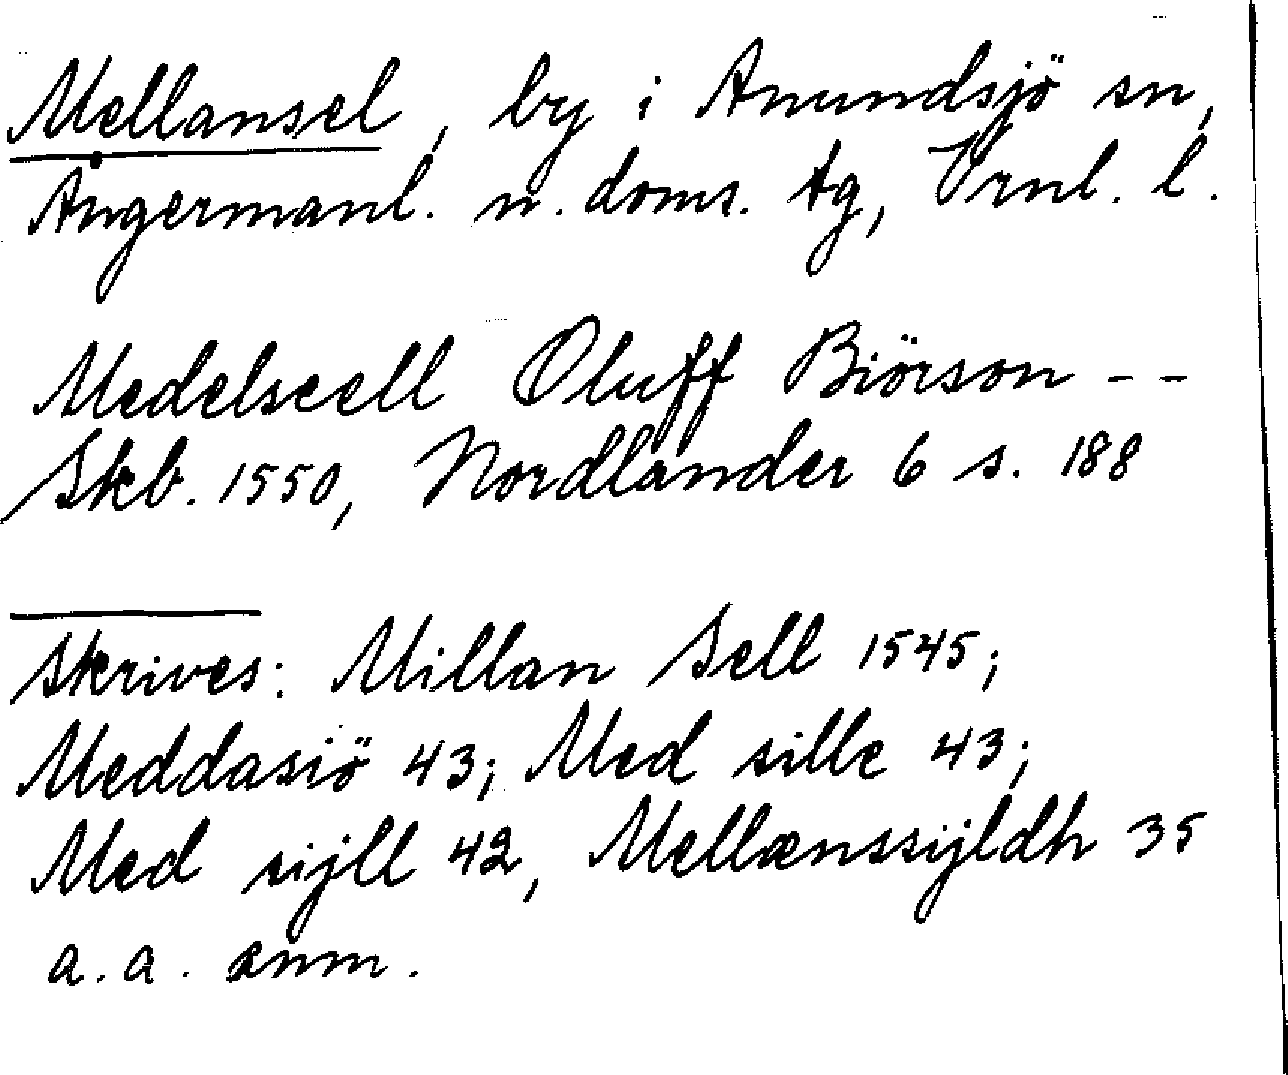 Mellansel, by i Anundsjö sn,
Ångermanl. n. doms. tg, Vrnl. l.
Medelseell Oluff Biörson - -
Skb. 1550, Nordlander 6 s. 188
Skrives: Millan Sell 1545;
Meddasiö 43; Med sille 43;
Med sijll 42, Mellænssijldh 35
a. a. anm.